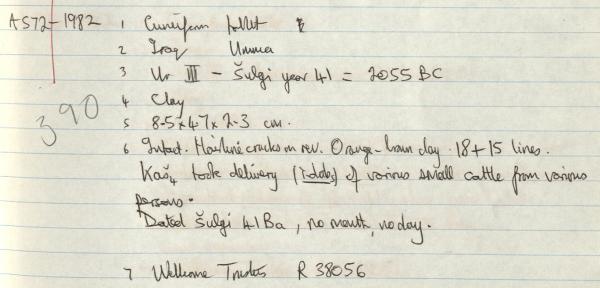 AS72-1982 1 Cuneiform tablet
2 Iraq Umma
3 Ur III - Šulgi year 41 = 2055 BC
390
4 Clay
5 8.5 x 4.7 x 2.3 cm.
6 Intact. Hairline cracks on rev. Orange-brown clay. 18+15 lines.
Kaš₄ took delivery (ì-dab₅) of various small cattle from various
persons.
Dated Šulgi 41 Ba, no month, no day.
7 Wellcome Trustees R 38056